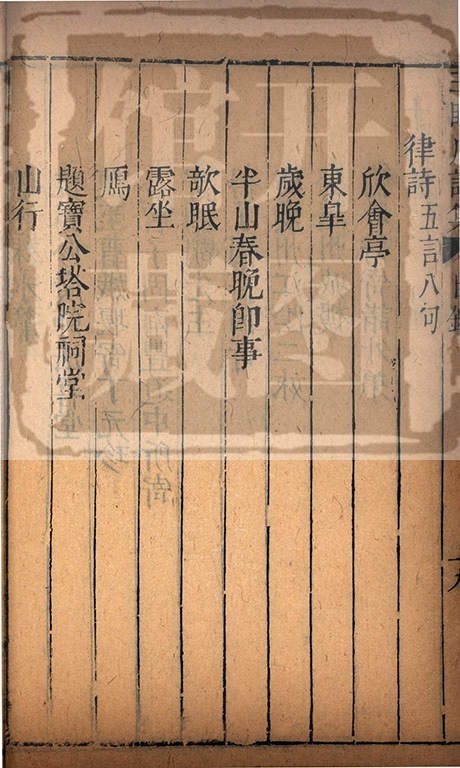 律詩五言八句
欣會亭
東臯
歲晚
半山春晚卽事
欹眠
露坐
題寶公塔院祠堂
山行